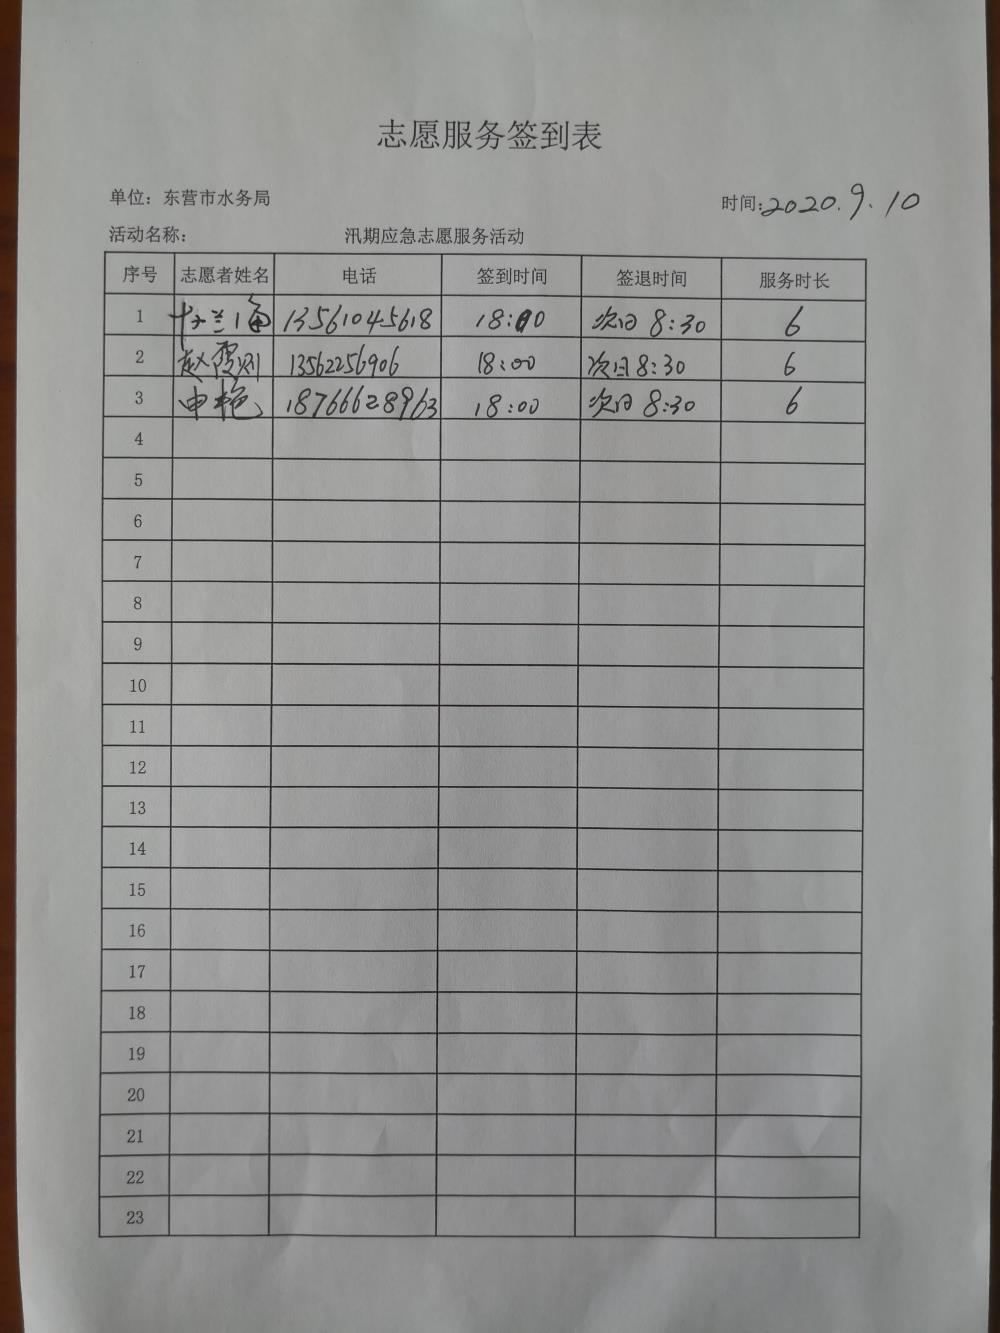 志愿服务签到表
单位：东营市水务局 时间：2020.9.10
活动名称： 汛期应急志愿服务活动
序号 志愿者姓名 电话 签到时间 签退时间 服务时长
1 13561045618 18:00 次日 8:30 6
2 赵 13562256906 18:00 次日 8:30 6
3 申艳 18766628963 18:00 次日 8:30 6
4
5
6
7
8
9
10
11
12
13
14
15
16
17
18
19
20
21
22
23